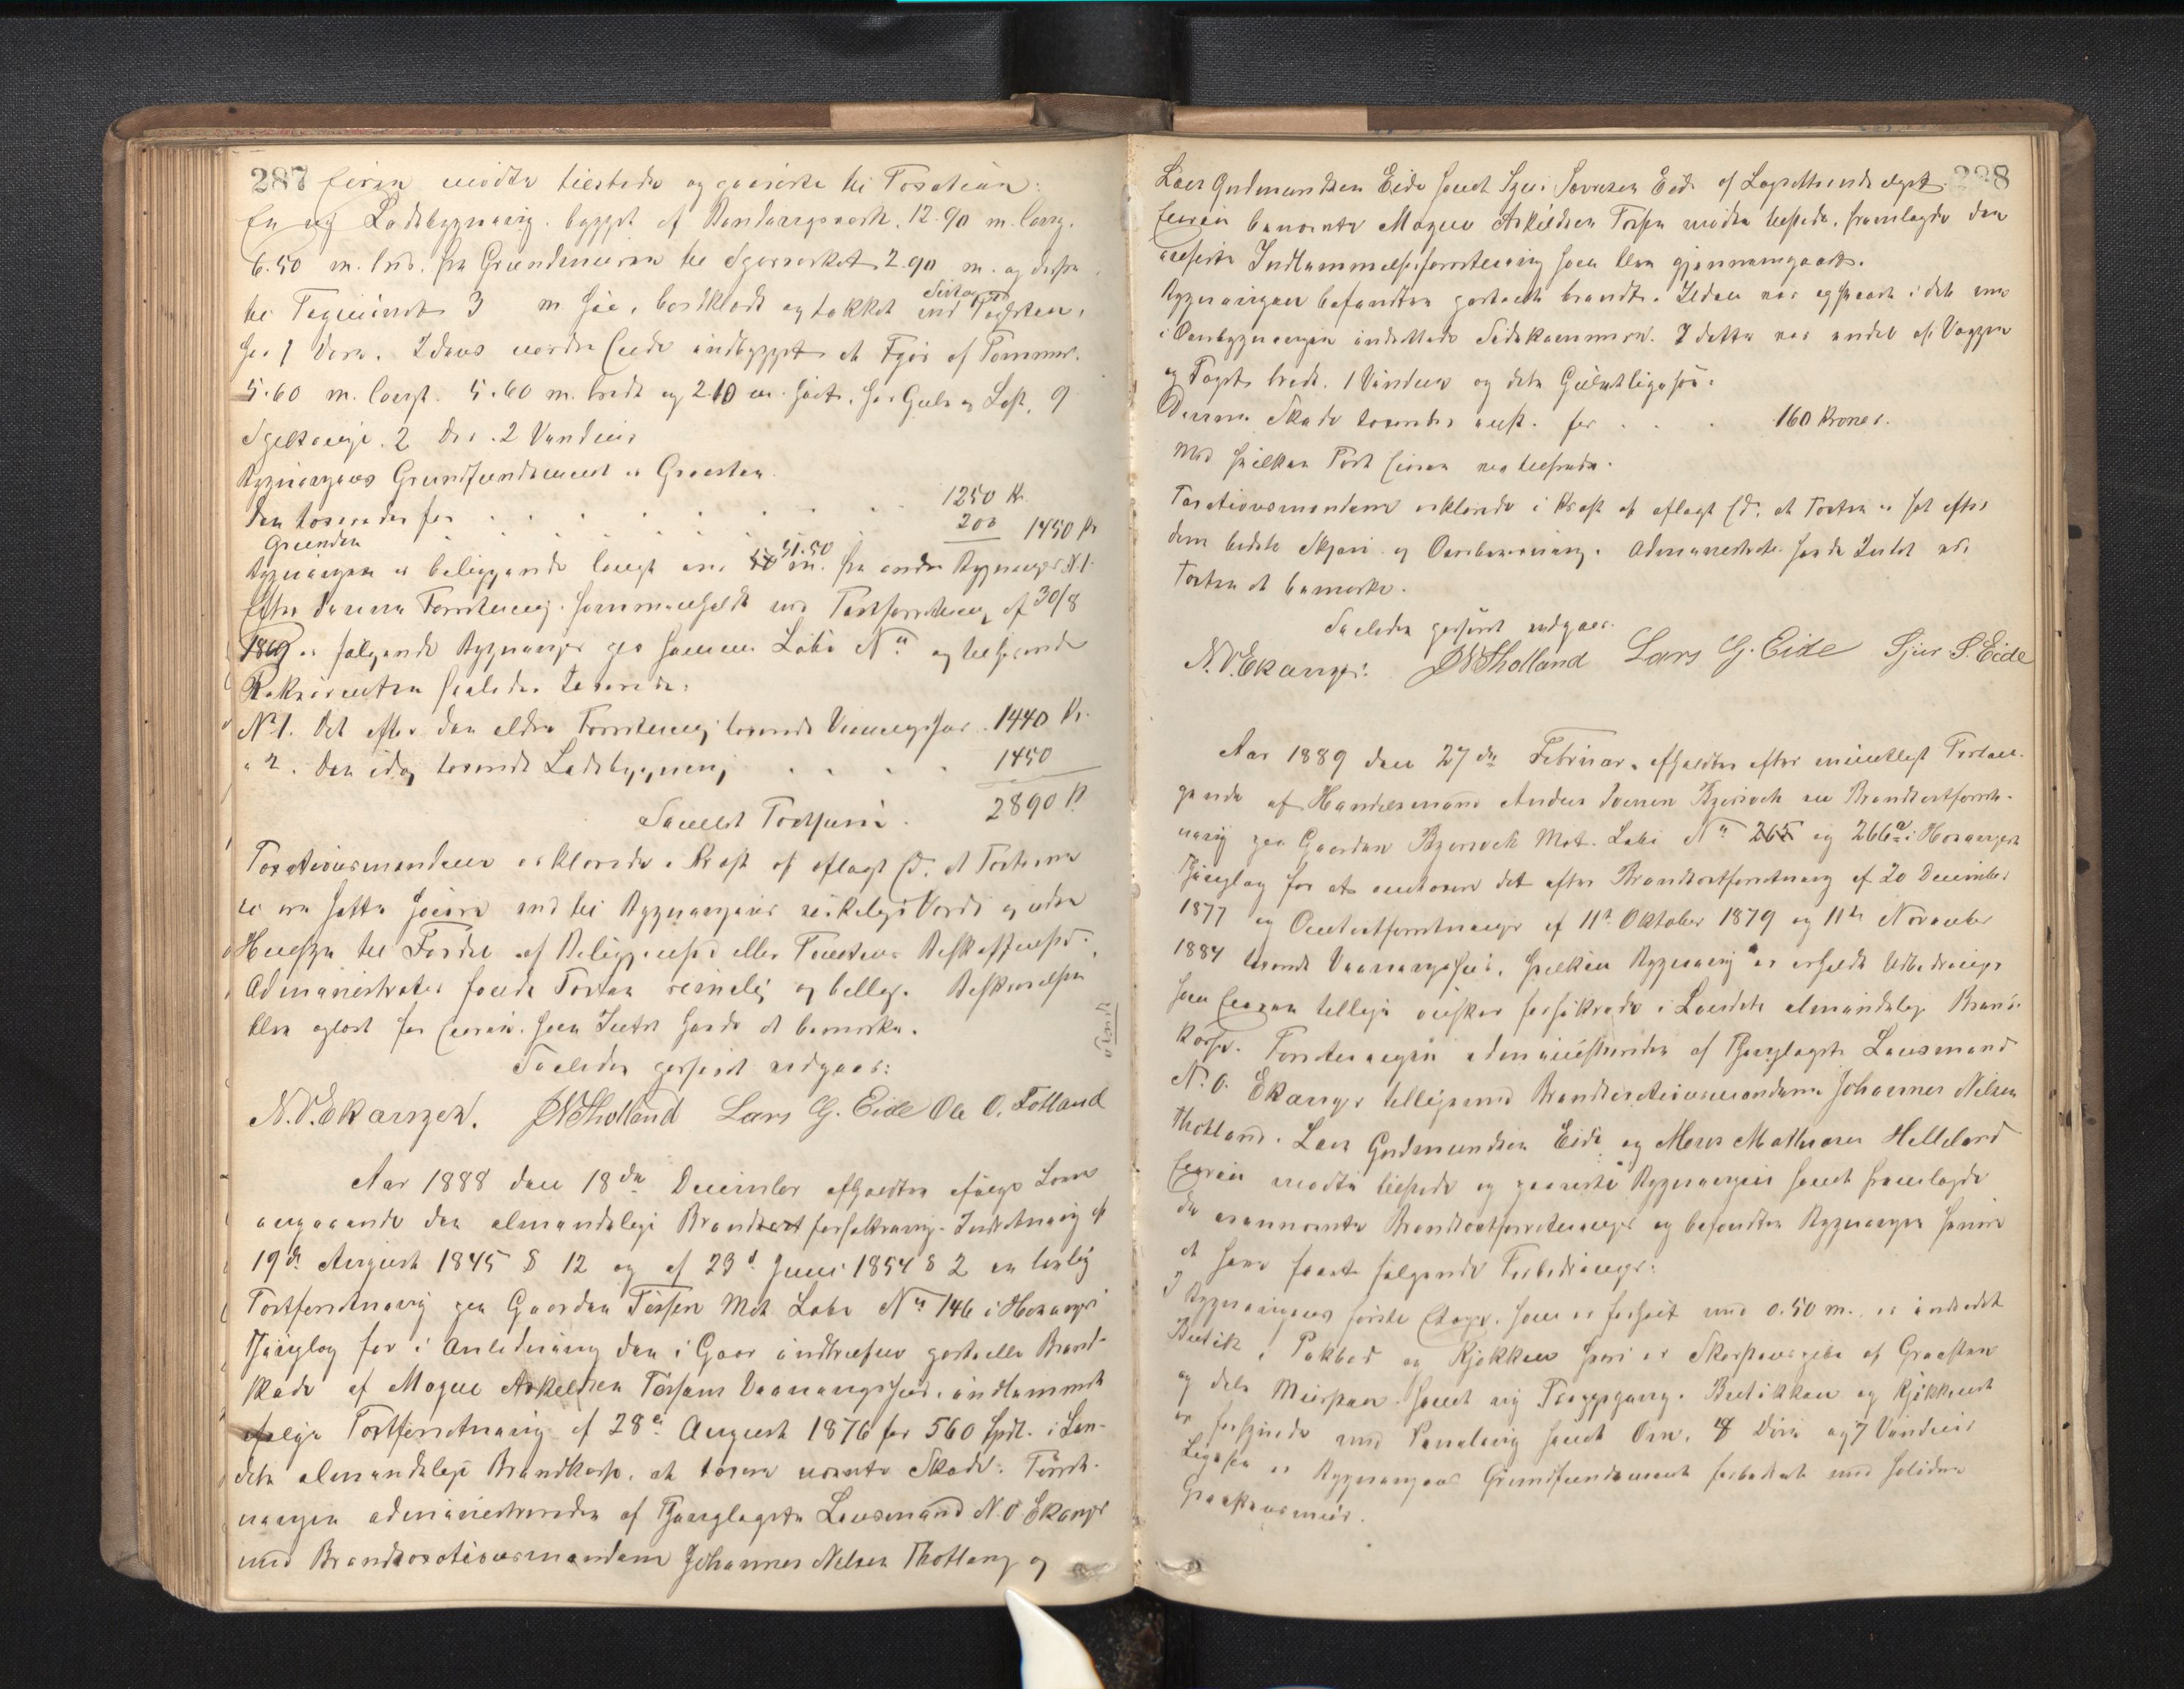 287
Eieren mødte tilstede og paaviste til Taxation:
En ny Ladebygning bygget af Bindingsværk, 12.90 m. lang,
6.50 m. bred, fra Grundmuren til Sperrerket 2.90 m. og derfra
til Tagmønet 3 m. høi, bordklædt og takket med Tagsten,
har 1 Dør. I dens nordre Ende indbygget et Fjøs af Tømmer
5.60 m. langt, 5.60 m. bredt og 2.10 m. høit, har Gulv og Loft, 9
2 Døre, 2 Vinduer
Bygningens Grundfundament er Graasten
Den taxeredes for . . . . . . 1250 Kr.
Grunden . . . . . . 200 1450 Kr
Bygningen er beliggende længst 51.50 m. fra andre Bygninger N. 1.
Efter denne Forretning, sammenholdt med Taxtforretning af 30/8
1869 er følgende Bygninger paa samme Løbe No og tilhørende
Rekvirenten saaledes taxerede:
No 1. Det efter den ældre Forretning taxerede Vaaningshus . 1440 Kr.
" 2. Den idag taxerede Ladebygning . . . . 1450
Samlet Taxtsum . 2890 Kr
Taxationsmændene erklærede i Kraft af aflagt Ed, at Taxterne
ei ere satte høiere end til Bygningernes virkelige Værdi og uden
Hensyn til Fordel af Beliggenhed eller Tomtens Beskaffenhed.
Administrator fandt Taxten rimelig og billig. Beskrivelsen
blev oplæst for Eieren, som Intet havde at bemærke.
Saaledes passeret vidner:
N. O. Ekanger. J N Tholland Lars G. Eide Ole O. Totland
vend
Aar 1888 den 18de December afholdtes ifølge Lov
angaaende den almindelige Brandforsikrings-Indretning af
19de August 1845 § 12 og af 23d Juni 1854 § 2 en lovlig
Taxtforretning paa Gaarden Tossen Mat. Løbe No 146 i Hosanger
Thinglag for i Anledning den i Gaar indtrufne partielle Brand-
skade af Magne Askeldsen Tossens Vaaningshus, indlemmet
ifølge Taxtforretning af 28de August 1876 for 560 Spdl. i Lan-
dets almindelige Brandkasse, at taxere nævnte Skade. Forret-
ningen administreredes af Thinglagets Lensmand N. O. Ekanger
med Brandtaxationsmændene Johannes Nilsen Thotland og
288
Lars Gudmundsen Eide samt Sjur Sjursen Eide af Lagrettemandstallet.
Eieren benævnte Magne Askeldsen Tossen mødte tilstede, fremlagde den
Indlemmelsesforretning som blev gjennemgaaet.
Bygningen befandtes partielt brændt. Ilden var opstaaet i det ene
i Bygningen indrettede Sidekammer. I dette var endel af Væggen
og Taget brændt, 1 Vindue og dets Gulv ligesaa.
Denne Skade taxeredes for . . . 160 Kroner.
Med hvilken Taxt Eieren var tilfreds.
Taxationsmændene erklærede i Kraft af aflagt Ed, at Taxten er sat efter
dem bedste Skjøn og Overbevisning. Administrator havde Intet ved
Taxten at bemærke.
Saaledes passeret vidner.
N. O. Ekanger: J N Tholland Lars G. Eide Sjur S. Eide
Aar 1889 den 27de Februar, afholdtes efter mundtligt Forlan-
gende af Handelsmand Anders Iversen Bjersvik en Brandtaxtforret-
ning paa Gaarden Bjersvik Mat. Løbe No 265 og 266a i Hosanger
Thinglag for at omtaxere det efter Brandtaxtforretning af 20 December
1877 og Omtaxtforretninger af 11te Oktober 1879 og 11te November
1884 taxerede Vaaningshus, hvilken Bygning er erholdt Udbedringer
som Eieren tillige ønsker forsikrede i Landets almindelige Brand-
kasse. Forretningen administreredes af Thinglagets Lensmand
N. O. Ekanger tilligemed Brandtaxationsmændene Johannes Nilsen
Thotland, Lars Gudmundsen Eide og Mons Mathiasen Helleland
Eieren mødte tilstede og paaviste Bygningen samt fremlagde
de ovennævnte Brandtaxtforretninger og befandtes Bygningen
at have faaet følgende Forbedringer:
I Bygningens første Etage, som er forhøiet med 0.50 m. er indredet
Butik, Pakbod og Kjøkken hvori er Skorstenspibe af Graasten
og dels Mursten samt ny Trappegang. Butikken og Kjøkkenet
er forsynede med Panelning samt Ovn, 8 Døre og 7 Vinduer
Ligesaa er Bygningens Grundfundament forbedret med solidere
Graastensmur.